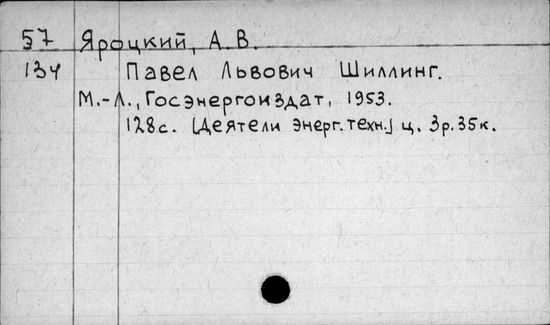 57 Яроцкий, А.В.
134 Павел Львович Шиллинг.
М.-Л., Госэнергоиздат, 1953.
128с. [Деятели энерг. техн.] ц. 3р. 35к.